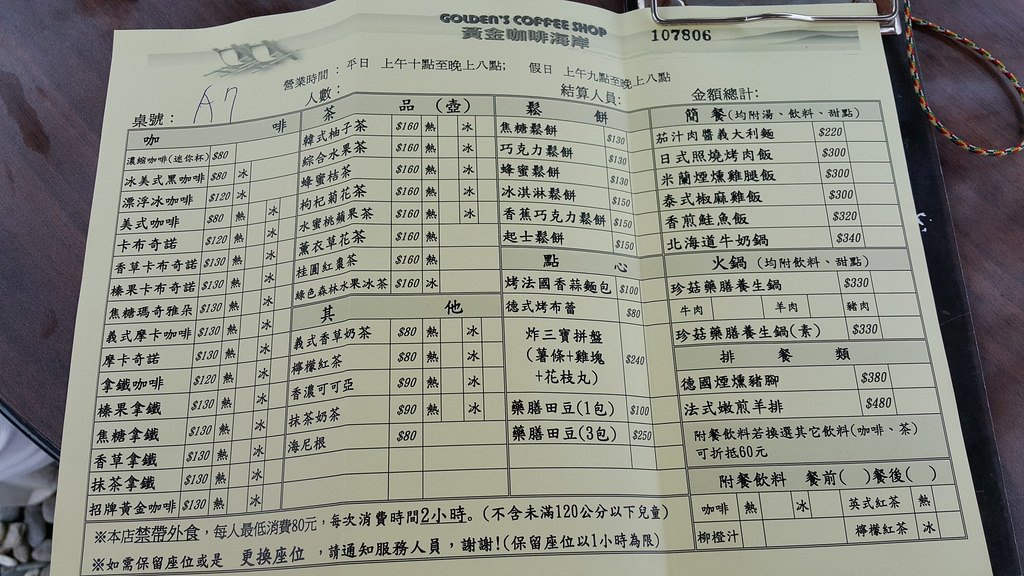 GOLDEN'S COFFEE SHOP
黃金咖啡海岸
107806
營業時間：平日 上午十點至晚上八點； 假日 上午九點至晚上八點
桌號： A7 人數： 結算人員： 金額總計：
咖 啡
濃縮咖啡(迷你杯) $80
冰美式黑咖啡 $80 冰
漂浮冰咖啡 $120 冰
美式咖啡 $80 熱 冰
卡布奇諾 $120 熱 冰
香草卡布奇諾 $130 熱 冰
榛果卡布奇諾 $130 熱 冰
焦糖瑪奇雅朵 $130 熱 冰
義式摩卡咖啡 $130 熱 冰
摩卡奇諾 $130 熱 冰
拿鐵咖啡 $120 熱 冰
榛果拿鐵 $130 熱 冰
焦糖拿鐵 $130 熱 冰
香草拿鐵 $130 熱 冰
抹茶拿鐵 $130 熱 冰
招牌黃金咖啡 $130 熱 冰
茶 品 (壺)
韓式柚子茶 $160 熱 冰
綜合水果茶 $160 熱 冰
蜂蜜桔茶 $160 熱 冰
枸杞菊花茶 $160 熱 冰
水蜜桃蘋果茶 $160 熱 冰
薰衣草花茶 $160 熱
桂圓紅棗茶 $160 熱
綠色森林水果冰茶 $160 冰
其 他
義式香草奶茶 $80 熱 冰
檸檬紅茶 $80 熱 冰
香濃可可亞 $90 熱 冰
抹茶奶茶 $90 熱 冰
海尼根 $80
鬆 餅
焦糖鬆餅 $130
巧克力鬆餅 $130
蜂蜜鬆餅 $130
冰淇淋鬆餅 $150
香蕉巧克力鬆餅 $150
起士鬆餅 $150
點 心
烤法國香蒜麵包 $100
德式烤布蕾 $80
炸三寶拼盤
(薯條+雞塊
+花枝丸) $240
藥膳田豆(1包) $100
藥膳田豆(3包) $250
簡 餐(均附湯、飲料、甜點)
茄汁肉醬義大利麵 $220
日式照燒烤肉飯 $300
米蘭煙燻雞腿飯 $300
泰式椒麻雞飯 $300
香煎鮭魚飯 $320
北海道牛奶鍋 $340
火鍋 (均附飲料、甜點)
珍菇藥膳養生鍋 $330
牛肉 羊肉 豬肉
珍菇藥膳養生鍋(素) $330
排 餐 類
德國煙燻豬腳 $380
法式嫩煎羊排 $480
附餐飲料若換選其它飲料(咖啡、茶)
可折抵60元
附餐飲料 餐前( )餐後( )
咖啡 熱 冰 英式紅茶 熱
柳橙汁 檸檬紅茶 冰
※本店禁帶外食，每人最低消費80元，每次消費時間2小時。(不含未滿120公分以下兒童)
※如需保留座位或是 更換座位 ，請通知服務人員，謝謝!(保留座位以1小時為限)